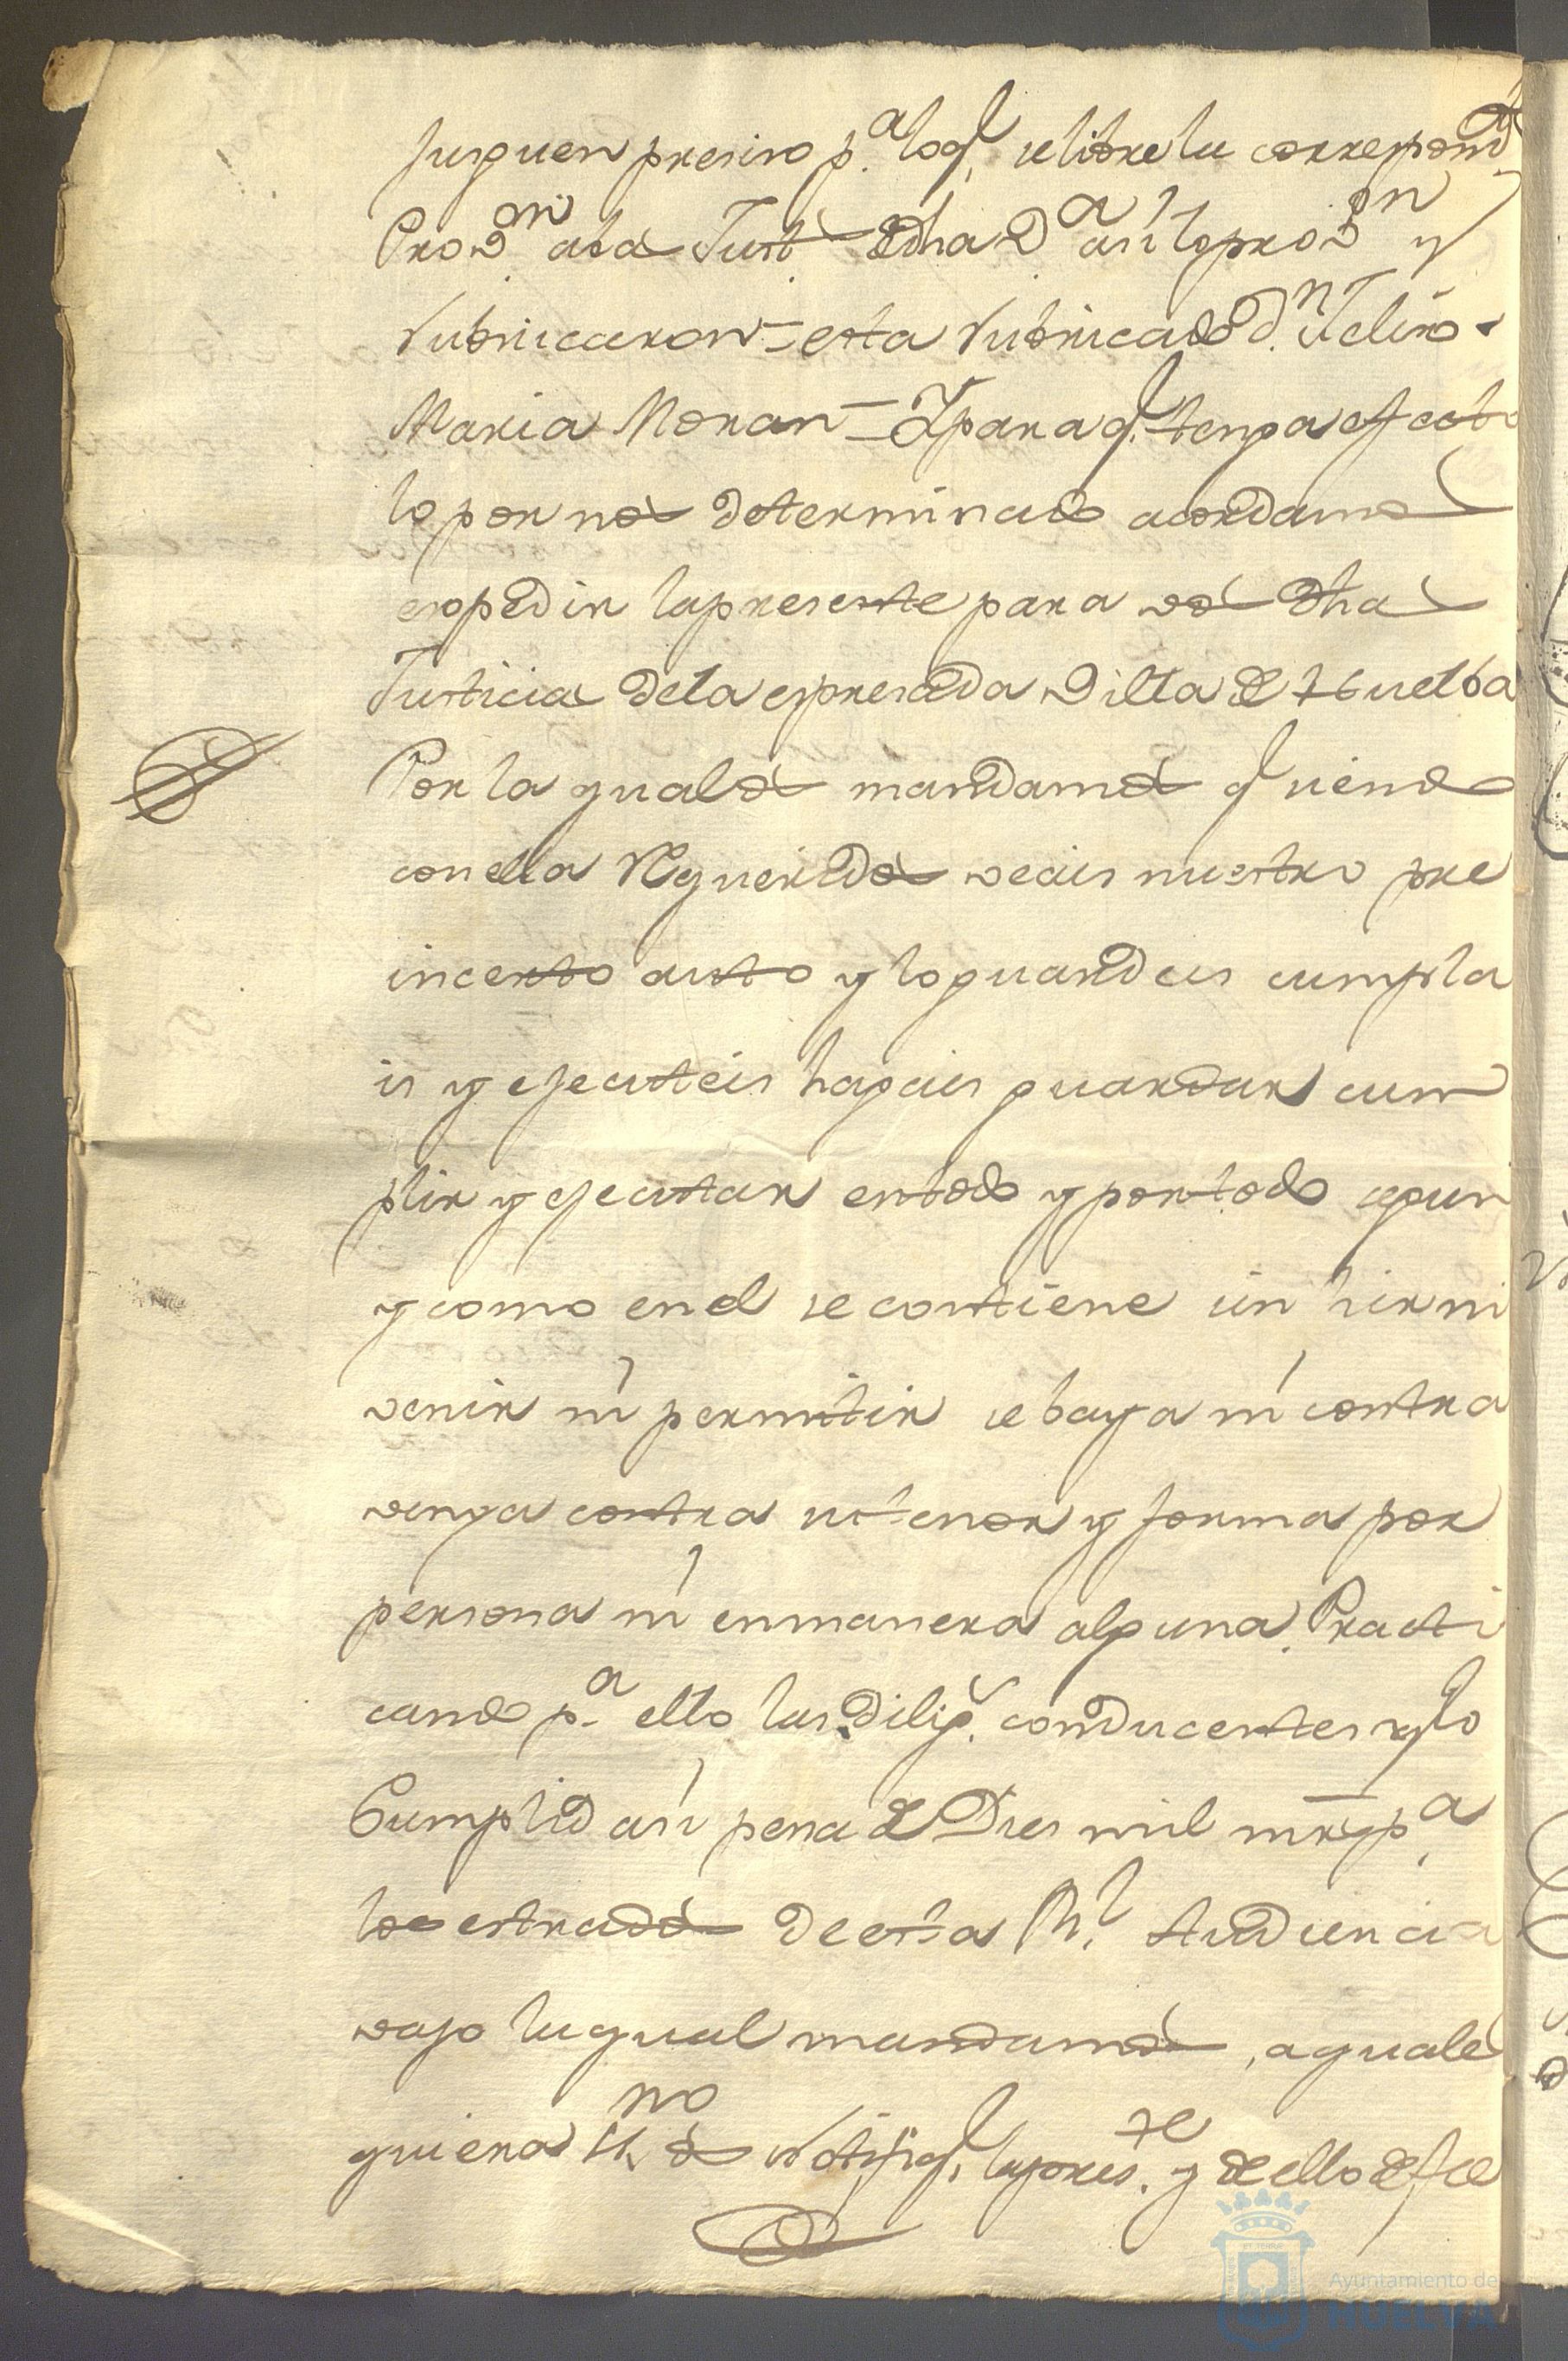 jusguen presiso p.a loq.l se libre la correspond.te
Prov.on a la Just.a de dha V.a asi lo prov.on y
rubricaron = esta rubricado D.n Felis
Maria Moran = Y para q.e tenga efecto
lo por nos determinado acordamos
expedir la presente para vos dha
Justicia de la espresada Villa de Huelba
Por la qual os mandamos q.e siendo
con ella Requeridos veais nuestro pre
incerto auto y lo guardeis cumpla
is y ejecuteis hagais guardar cum
plir y ejecutar en todo y por todo segun
y como en el se contiene sin hir ni
venir ni permitir se baya ni contra
venga contra su tenor y forma por
persona ni en manera alguna. Practi
cando p.a ello las dilig.s conducentes y lo
Cumplid asi pena de Dies mil mrs p.a
los estrados de esta R.l Audiencia
vajo la qual mandamos, a quales
quiera ss.no os Notifiq.e la pres.te y de ello de fee
Ayuntamiento de
HUELVA